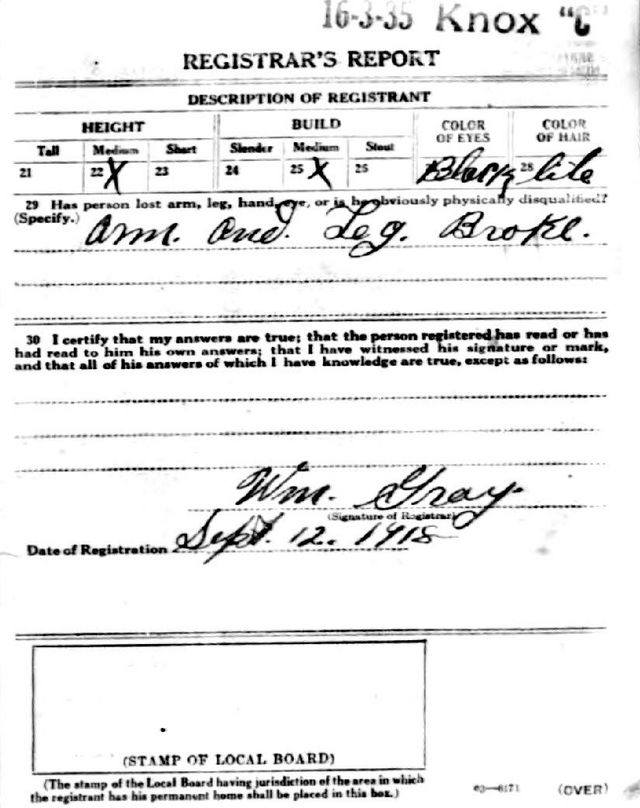 16-3-35 Knox "C"
REGISTRAR'S REPORT
DESCRIPTION OF REGISTRANT
HEIGHT BUILD COLOR OF EYES COLOR OF HAIR
Tall Medium Short Slender Medium Stout
21 22 X 23 24 25 X 25 Black 28
29 Has person lost arm, leg, hand, eye, or is he obviously physically disqualified?
(Specify.) Arm. And. Leg. Broke.
30 I certify that my answers are true; that the person registered has read or has
had read to him his own answers; that I have witnessed his signature or mark,
and that all of his answers of which I have knowledge are true, except as follows:
Wm. Gray.
(Signature of Registrar)
Date of Registration Sept. 12. 1918
(STAMP OF LOCAL BOARD)
(The stamp of the Local Board having jurisdiction of the area in which
the registrant has his permanent home shall be placed in this box.)
03—6171 (OVER)